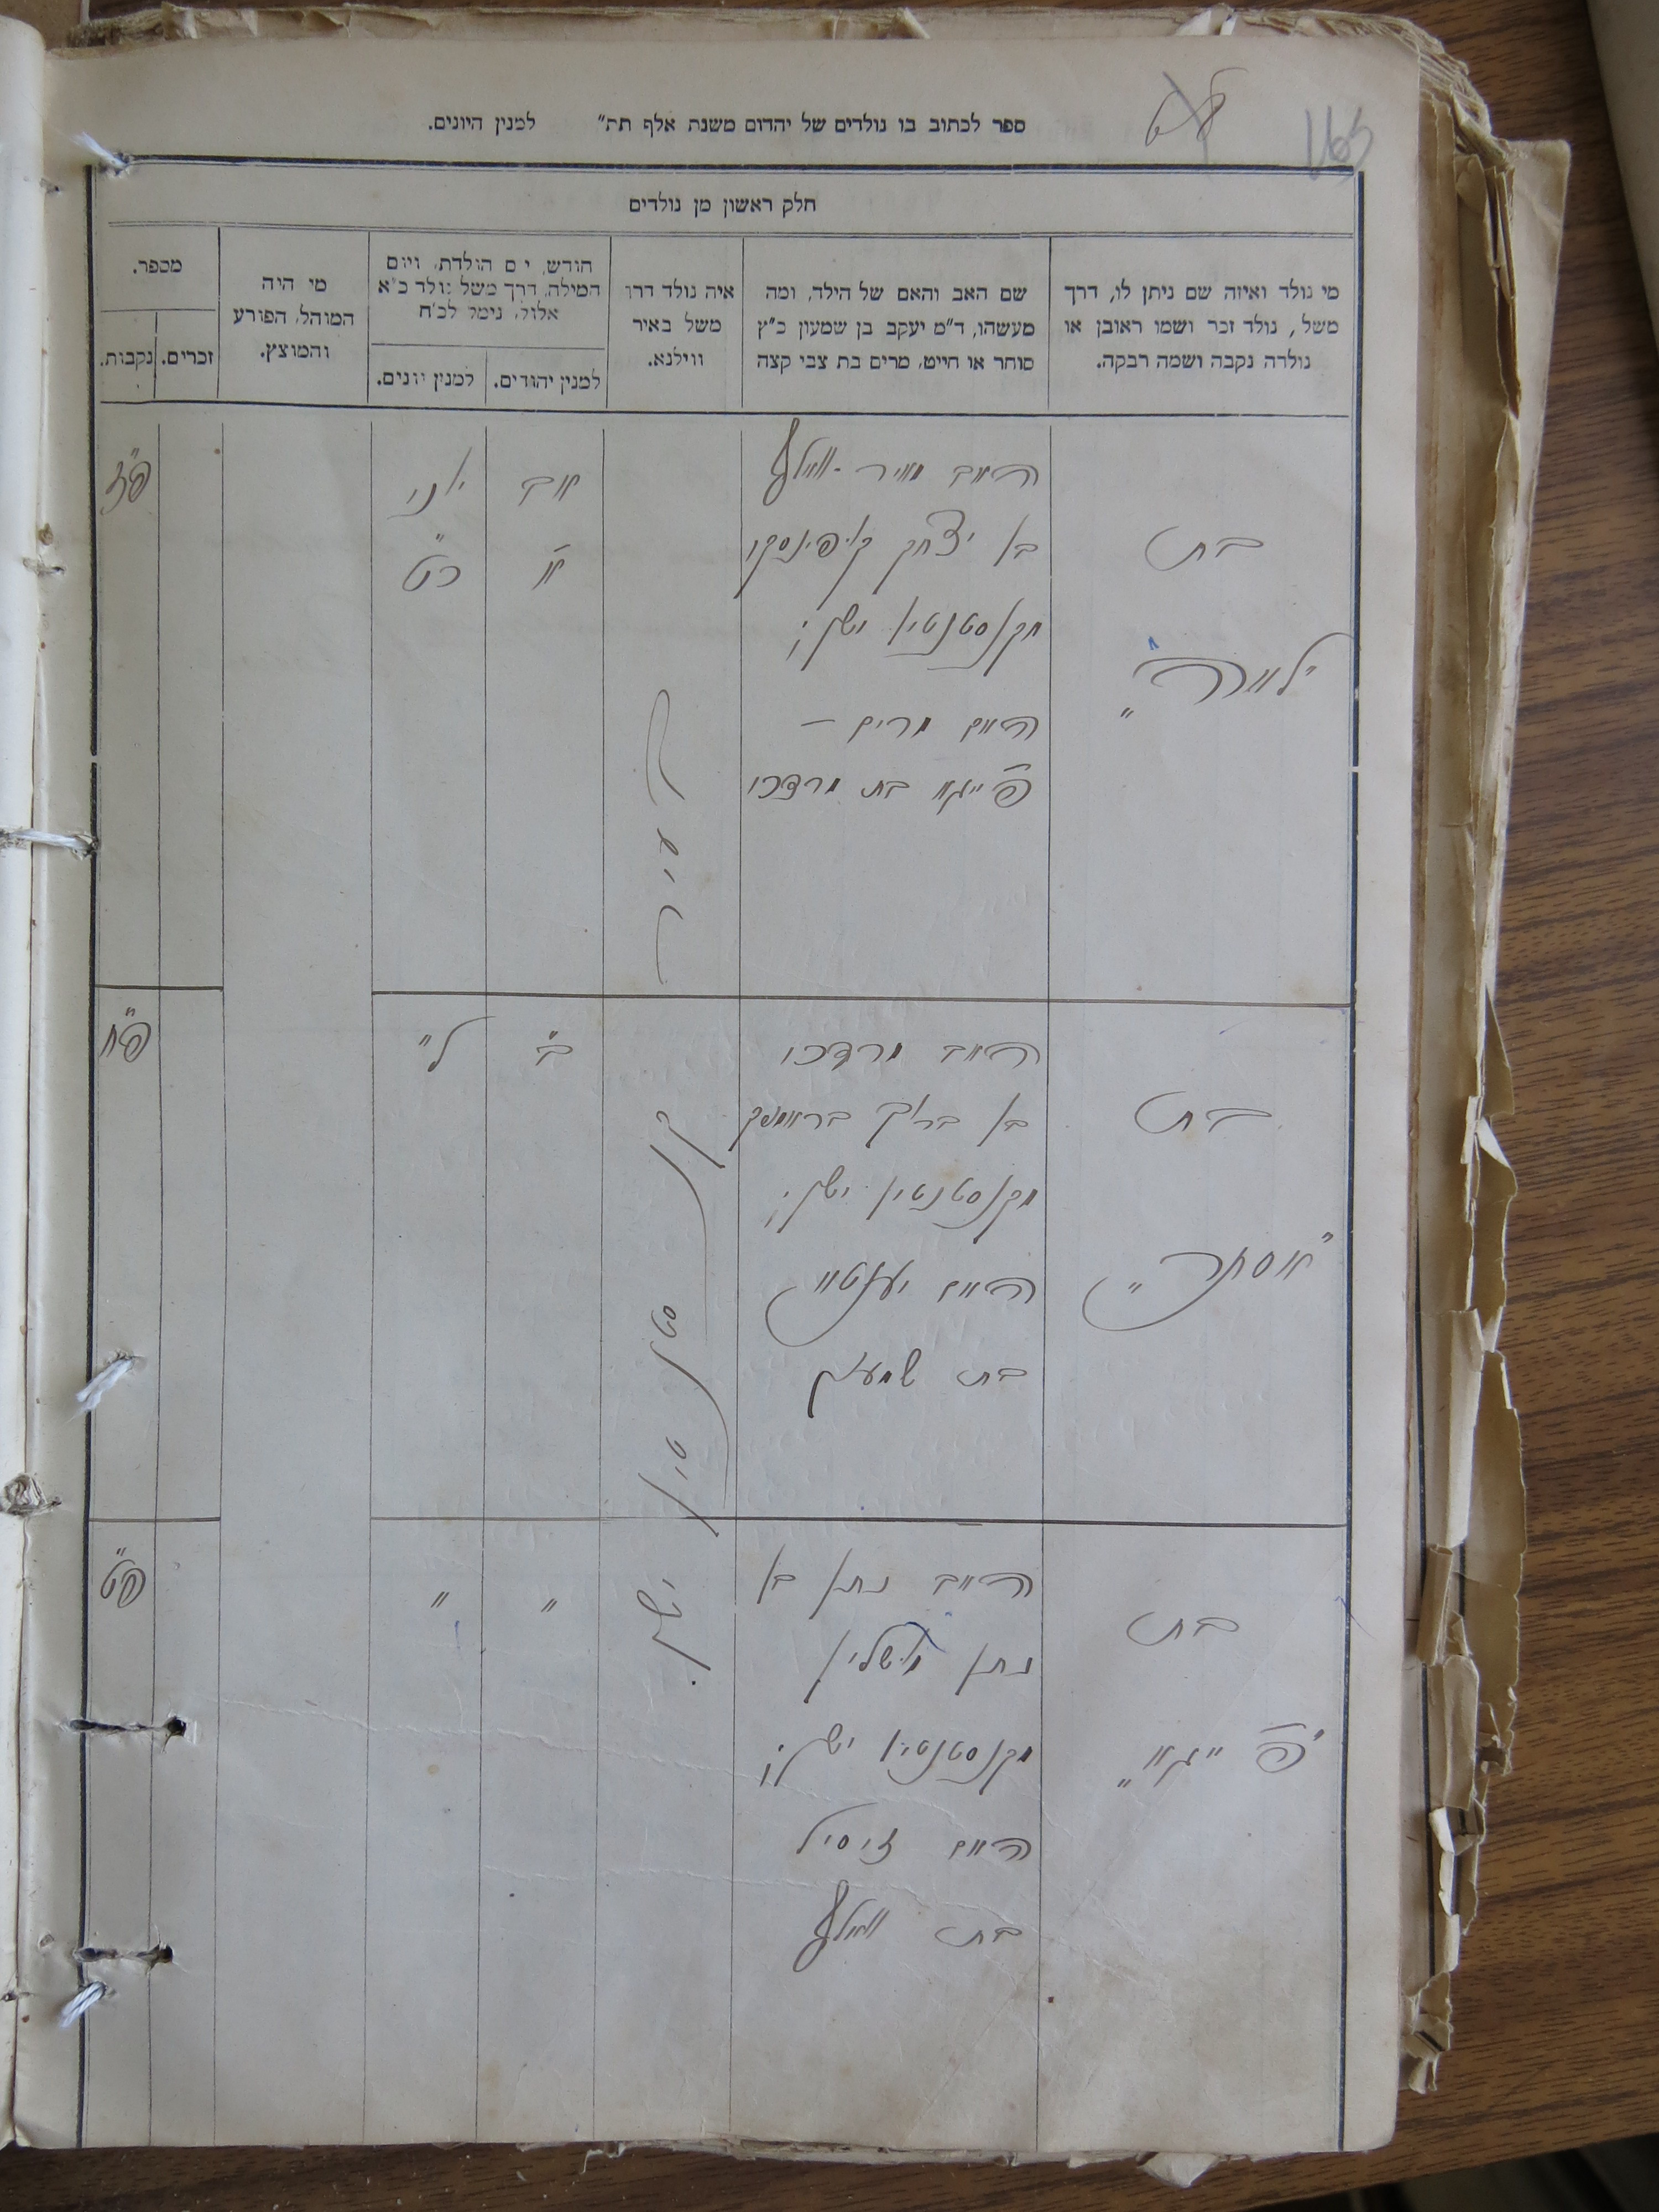 165
ספר לכתוב בו נולדים של יהדום משנת אלף תת״ למנין היונים.
חלק ראשון מן נולדים
מי נולד ואיזה שם ניתן לו, דרך
משל, נולד זכר ושמו ראובן או
נולדה נקבה ושמה רבקה.
שם האב והאם של הילד, ומה
מעשהו, ד״מ יעקב בן שמעון כ״ץ
סוחר או חייט, מרים בת צבי קצה
איה נולד דרך
משל באיר
ווילנא.
חודש, יום הולדת, ויום
המילה, דרך משל נולד כ״א
אלול, נימל לכ״ח
למנין יהודים.
למנין יונים.
מי היה
המוהל, הפורע
והמוצץ.
מספר.
זכרים.
נקבות.
בת
האב מאיר-וואלף
בן יצחק
מקאנסטנטין ישן;
האם מרים –
פייגא בת מרדכי
לעיר
אב
א
יוני
כט
פ״ז
בת
״אסתר״
האב מרדכי
בן ברוך
מקאנסטנטין ישן;
האם יענטא
בת שמעון
קאנסטאנטין
ב״
ל״
פ״ח
בת
״פייגא״
האב נתן בן
נתן
מקאנסטנטין ישן;
האם זיסיל
בת וואלף
ישן.
״
״
פ״ט